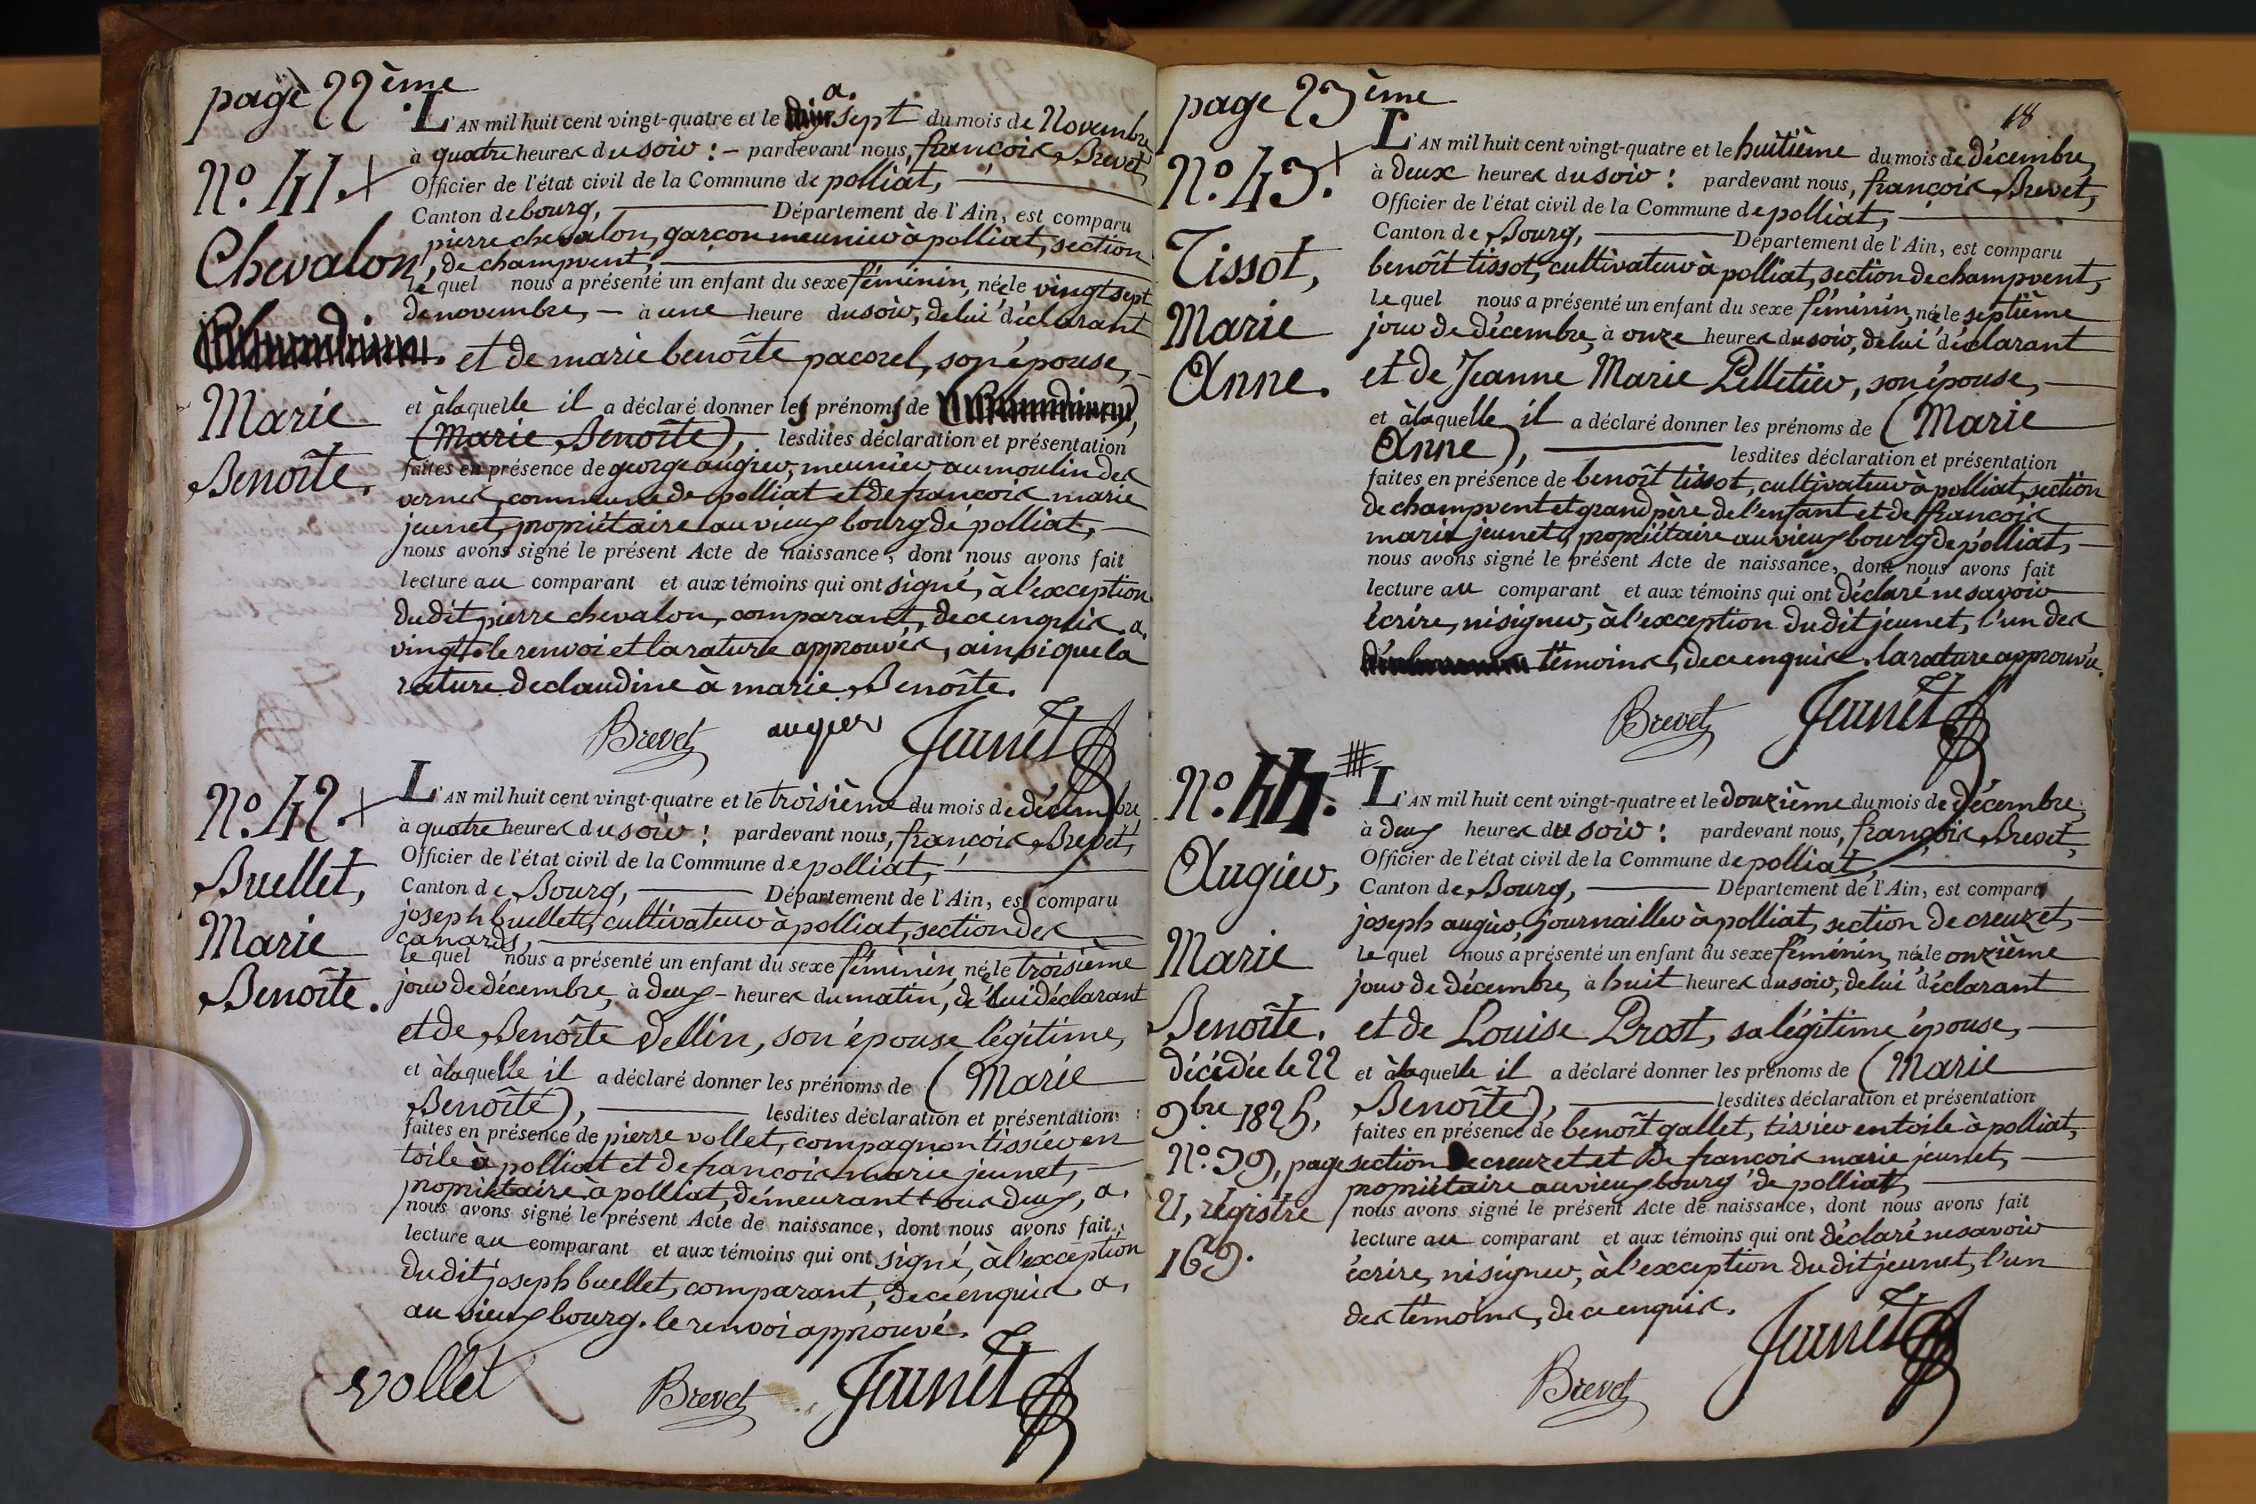 page 22ème
L'AN mil huit cent vingt-quatre et le a. sept du mois de Novembre
à quatre heures du soir : – pardevant nous, françois Brevet,
Officier de l'état civil de la Commune de polliat,
Canton de bourg, Département de l'Ain, est comparu
pierre chevalon, garçon meunier à polliat, section
de champvent,
le quel nous a présenté un enfant du sexe féminin, née le vingt sept
de novembre, – à une heure du soir, de lui déclarant
et de marie benoîte pacorel, son épouse,
et à laquelle il a déclaré donner les prénoms de
(Marie Benoîte), lesdites déclaration et présentation
faites en présence de george augier, meunier au moulin des
vernes, commune de polliat et de françois marie
jeunet, propriétaire au vieux bourg de polliat,
nous avons signé le présent Acte de naissance, dont nous avons fait
lecture au comparant et aux témoins qui ont signé, à l'exception
dudit pierre chevalon, comparant, de ce enquis. a.
vingt. le renvoi et la rature approuvés, ainsi que la
rature de claudine à marie Benoîte.
Brevet augier Jeunet
Nº. 41. +
Chevalon,
Marie
Benoîte.
Nº. 42. +
Buellet,
Marie
Benoîte.
L'AN mil huit cent vingt-quatre et le troisième du mois de décembre
à quatre heures du soir : pardevant nous, françois Brevet,
Officier de l'état civil de la Commune de polliat,
Canton de Bourg, Département de l'Ain, est comparu
joseph buellet, cultivateur à polliat, section des
canards,
le quel nous a présenté un enfant du sexe féminin, née le troisième
jour de décembre, à deux – heures du matin, de lui déclarant
et de Benoîte Vellin, son épouse légitime,
et à laquelle il a déclaré donner les prénoms de (Marie
Benoîte), lesdites déclaration et présentation
faites en présence de pierre vollet, compagnon tissier en
toile à polliat et de françois marie jeunet,
propriétaire à polliat, demeurant tous deux, a.
nous avons signé le présent Acte de naissance, dont nous avons fait
lecture au comparant et aux témoins qui ont signé, à l'exception
dudit joseph buellet, comparant, de ce enquis. a.
au vieux bourg. le renvoi approuvé.
vollet Brevet Jeunet
page 23ème
18
Nº. 43. +
Tissot,
Marie
Anne.
L'AN mil huit cent vingt-quatre et le huitième du mois de décembre,
à deux heures du soir : pardevant nous, françois Brevet,
Officier de l'état civil de la Commune de polliat,
Canton de Bourg, Département de l'Ain, est comparu
benoît tissot, cultivateur à polliat, section de champvent,
le quel nous a présenté un enfant du sexe féminin, née le septième
jour de décembre, à onze heures du soir, de lui déclarant
et de Jeanne Marie Pelletier, son épouse,
et à laquelle il a déclaré donner les prénoms de (Marie
Anne), lesdites déclaration et présentation
faites en présence de benoît tissot, cultivateur à polliat, section
de champvent et grand père de l'enfant et de françois
marie jeunet, propriétaire au vieux bourg de polliat,
nous avons signé le présent Acte de naissance, dont nous avons fait
lecture au comparant et aux témoins qui ont déclaré ne savoir
écrire, ni signer, à l'exception dudit jeunet, l'un des
témoins, de ce enquis. la rature approuvée.
Brevet Jeunet
Nº. 44.
Augier,
Marie
Benoîte.
décédée le 22
9bre 1825,
Nº. 39, page
21, régistre
169.
L'AN mil huit cent vingt-quatre et le douzième du mois de décembre,
à deux heures du soir : pardevant nous, françois Brevet,
Officier de l'état civil de la Commune de polliat,
Canton de Bourg, Département de l'Ain, est comparu
joseph augier, journaillier à polliat, section de creuzet,
le quel nous a présenté un enfant du sexe féminin, née le onzième
jour de décembre, à huit heures du soir, de lui déclarant
et de Louise Prost, sa légitime épouse,
et à laquelle il a déclaré donner les prénoms de (Marie
Benoîte), lesdites déclaration et présentation
faites en présence de benoît gallet, tissier en toile à polliat,
section de creuzet et de françois marie jeunet,
propriétaire au vieux bourg de polliat,
nous avons signé le présent Acte de naissance, dont nous avons fait
lecture au comparant et aux témoins qui ont déclaré ne savoir
écrire, ni signer, à l'exception dudit jeunet, l'un
des témoins, de ce enquis.
Brevet Jeunet